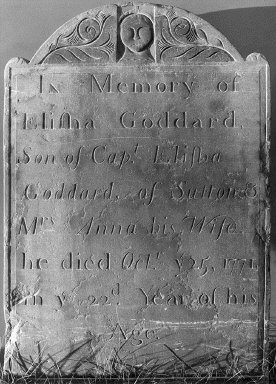 In Memory of
Eliſha Goddard,
Son of Capᵗ Eliſha
Goddard, of Sutton &
Mʳˢ Anna his Wife
he died Octʳ yᵉ 25, 1771
In yᵉ 22ᵈ Year of his
Age.